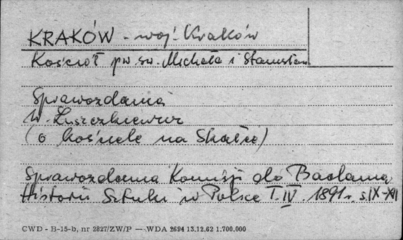 KRAKÓW - woj. Kraków
Kościół pw. św. Michała i Stanisława
Sprawozdania
W. Łuszczkiewicz
(o kościele na Skałce)
Sprawozdania Komisji do Badania
Historii Sztuki w Polsce T. IV. 1891 r. s. IX-XII
CWD - B-15-b, nr 2027/ZW/P — WDA 2604 13.12.62 1.700.000